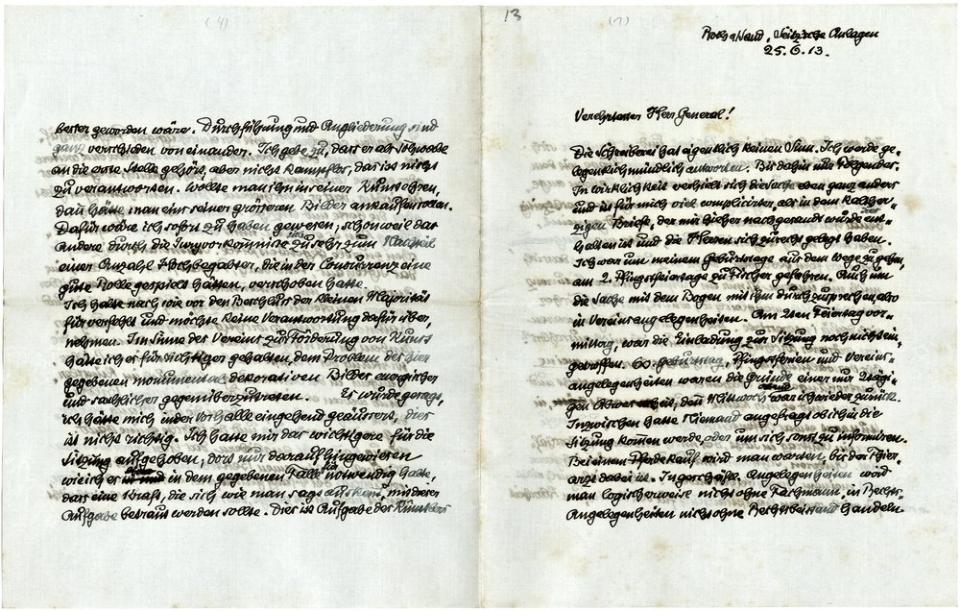 (4)
besser geworden wäre. Durchführung und Angliederung sind
ganz verschieden von einander. Ich gebe zu, dass er als Schwabe
an die erste Stelle gehört, aber nicht kampflos, das ist nicht
zu verantworten. Wollte man ihn in seiner Kunst ehren,
dan hätte man eins seiner grösseren Bilder ankaufen sollen.
Dafür wäre ich sofort zu haben gewesen, schon weil das
Andere durch die Juryvorkommnisse zu sehr zum Nachteil
einer Anzahl Hochbegabter, die in der Concurrenz eine
gute Rolle gespielt hätten, verschoben hatte.
Ich halte nach wie vor den Beschluss der kleinen Majorität
für verfehlt und möchte keine Verantwortung dafür über,
nehmen. Im Sinne des Vereins zur Förderung von Kunst
hätte ich es für richtiger gehalten, dem Problem der hier
gegebenen monumental dekorativen Bilder energischer
und sachlicher gegenüberzutreten. Es wurde gesagt,
ich hätte mich in der Vorhalle eingehend geäussert, dies
ist nicht richtig. Ich hatte mir das wichtigere für die
Sitzung aufgehoben, dort nur darauf hingewiesen
wie ich es in dem gegebenen Falle für notwendig halte,
dass eine Kraft, die sich wie man sagt auskent, mit dieser
Aufgabe betraut werden sollte. Dies ist Aufgabe des Künstlers
13
(1)
Seitz'sche Anlagen
25.6.13.
Verehrtester Herr General!
Die Schreiberei hat eigentlich keinen Sinn. Ich werde ge-
legentlich mündlich antworten. Bis dahin nur Folgendes.
In wirklichkeit verhielt sich die Sache eben ganz anders
und ist für mich viel complicirter, als in dem kalther-
zigen Briefe, der mir hieher nachgesandt würde ent-
halten ist und die Herren sich zurecht gelegt haben.
Ich war um meinem Geburtstage aus dem Wege zu gehn,
am 2. Pfingstfeiertage zu Fischer gefahren. Auch um
die Sache mit dem Bogen mit ihm durchzusprechen also
in Vereinsangelegenheiten. Am 2ten Feiertag vor-
mittag, war die Einladung zur Sitzung noch nicht ein-
getroffen. 60. geburtstag, Pfingstferien und Vereins-
angelegenheiten waren die Gründe einer nur 2tägi-
gen Abwesenheit, den Mittwoch abend war ich wieder zurück.
Inzwischen hatte Niemand angefragt ob ich in die
Sitzung komen werde, oder um sich sonst zu informiren.
Bei einem Pferdekauf wird man warten, bis der Thier-
arzt dabei ist. In geschäftl. Angelegenheiten wird
man logischerweise nicht ohne Fachmann, in Rechts-
Angelegenheiten nicht ohne Rechtsbeistand handeln